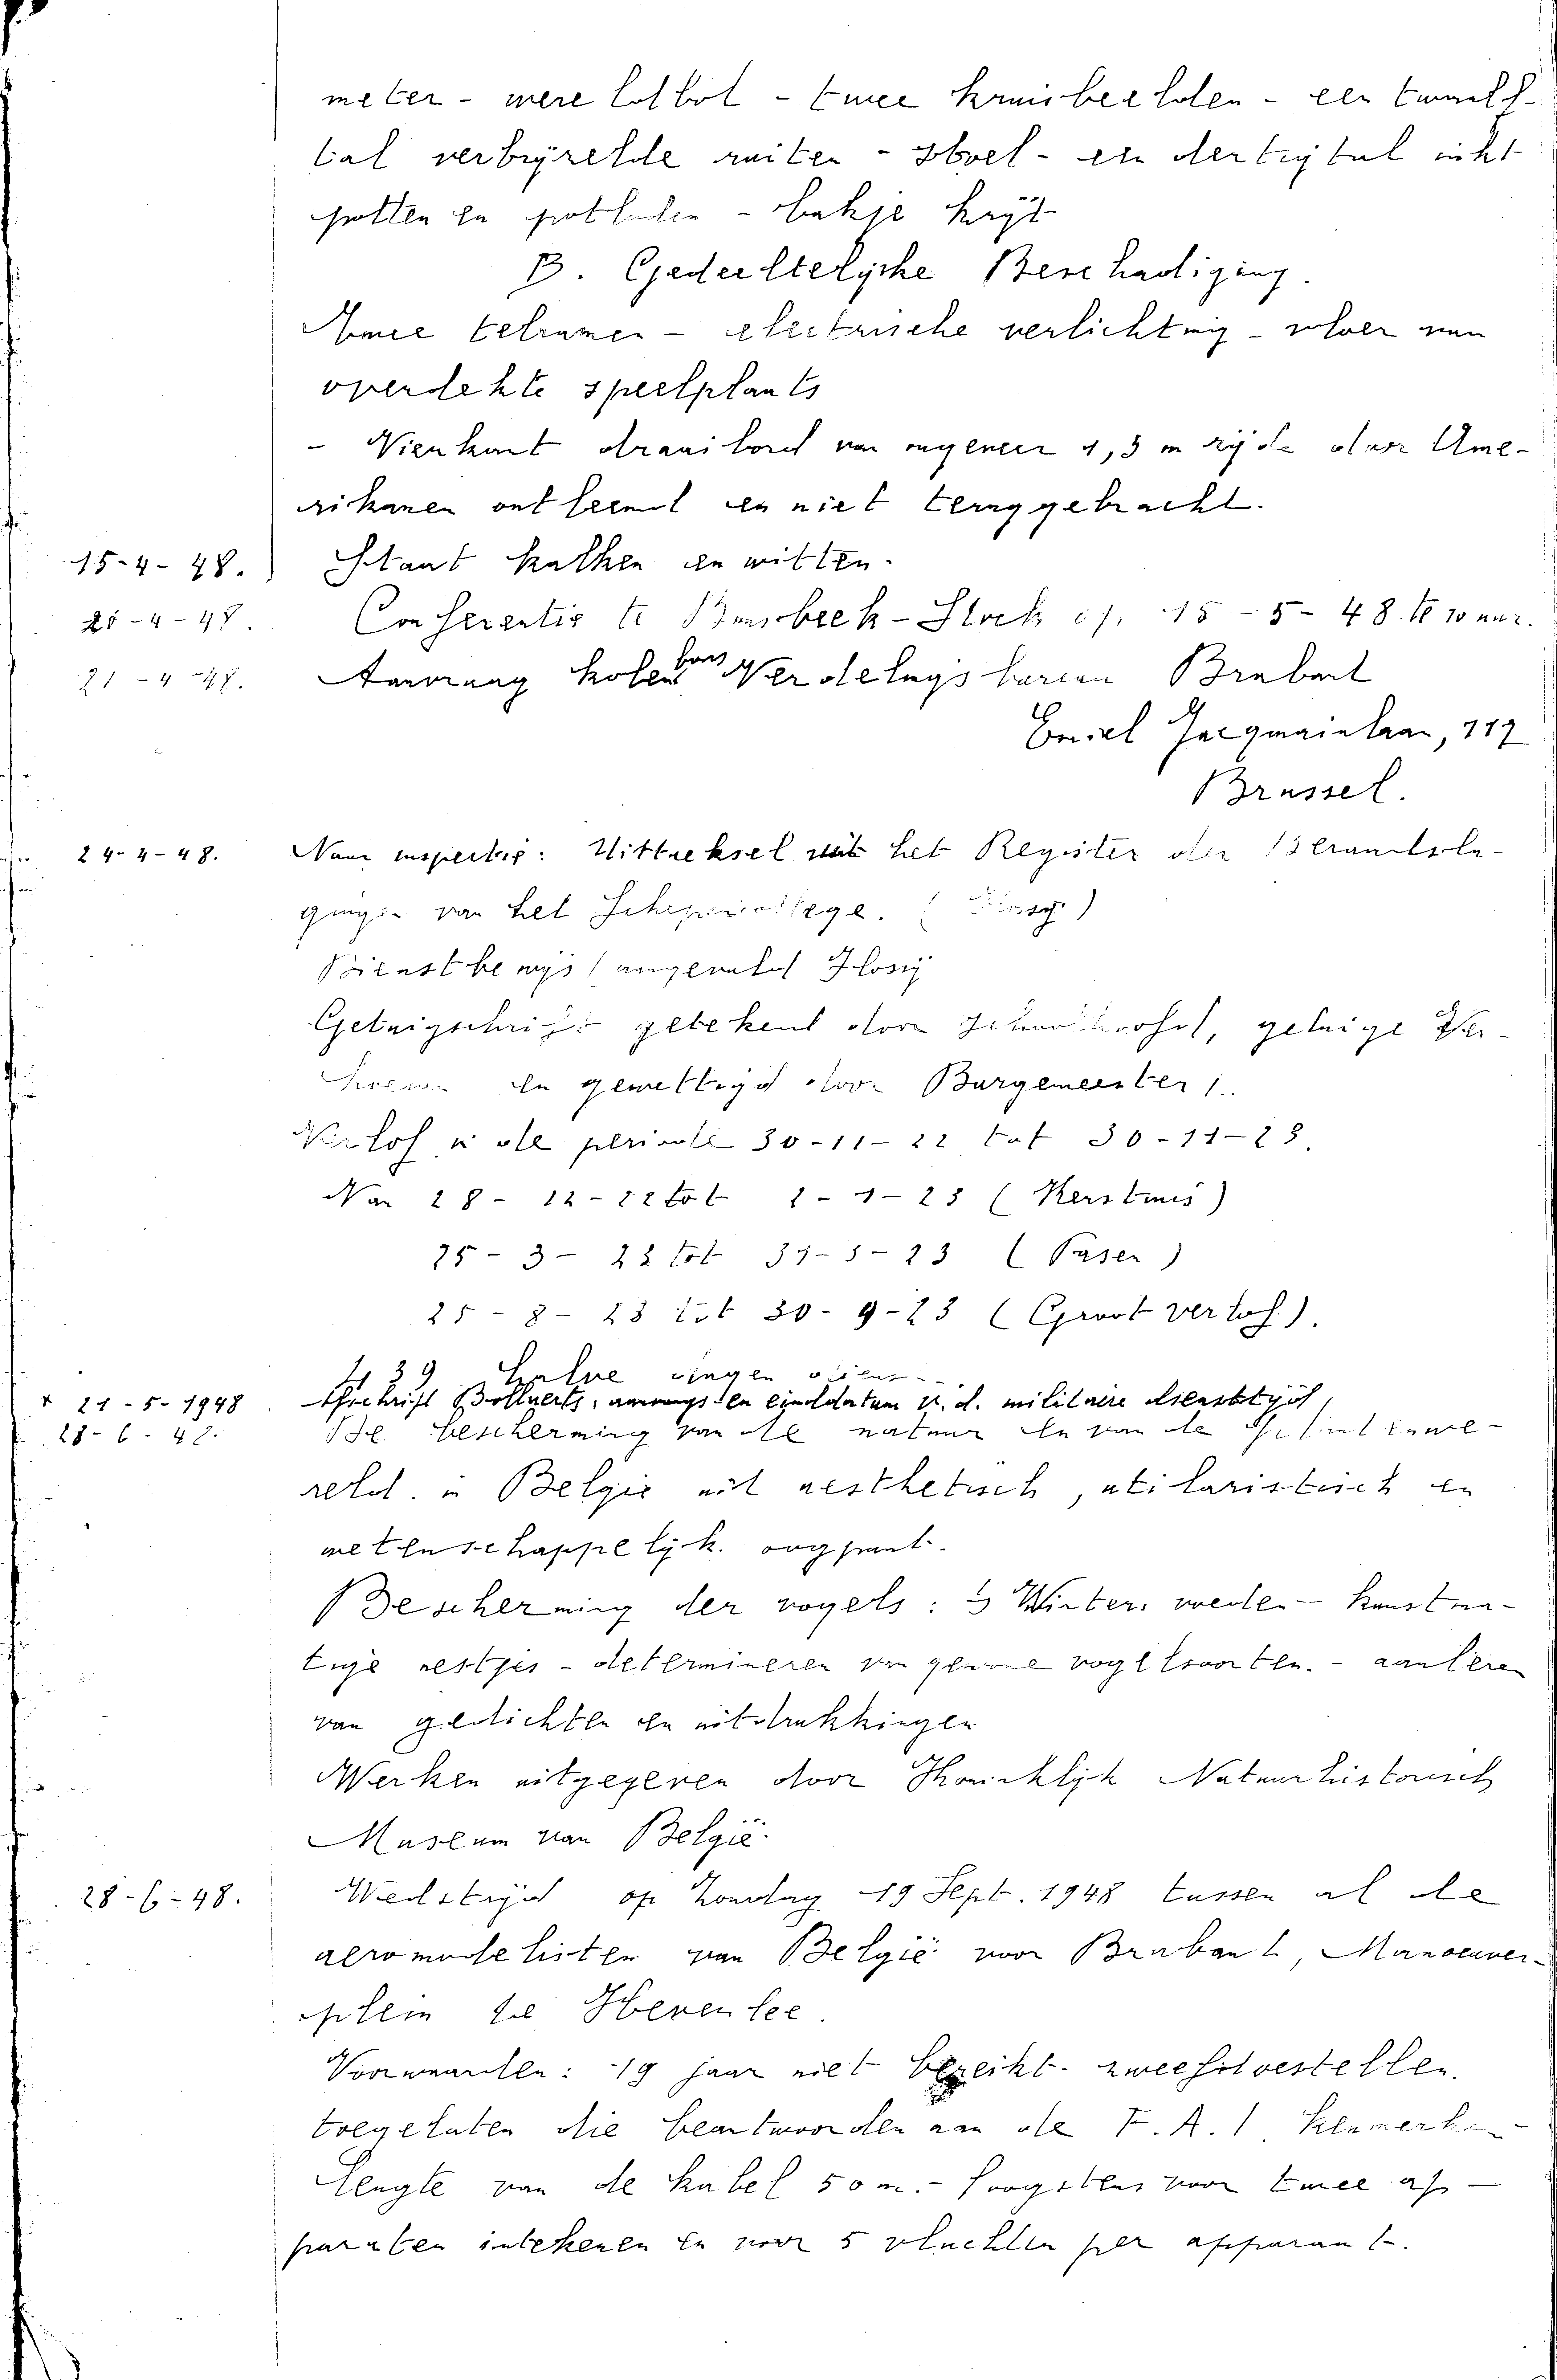 meter - twee kruisbeelden - een twaalf-
tal verbrijzelde ruiten - stoel - een dertigtal inkt
potten en potloden - bakje krijt
B. Gedeeltelijke Beschadiging.
Twee - electrische verlichting - vloer van
overdekte speelplaats
- Vierkant van ongeveer 1,3 m zijde door Ame-
rikanen ontleend en niet teruggebracht.
15-4-48. Staat kalken en witten.
20-4-48. Conferentie te Beersel - op 15-5-48 te 10 uur.
21-4-48. Aanvraag kolen bons Verdelings bureau Brabant
Emiel Jacqmainlaan, 117
Brussel.
24-4-48. Naar inspectie: Uittreksel uit het Register der Beraadsla-
gingen van het Schepencollege.
Dienstbewijs (
Getuigschrift getekend door Schoolhoofd, getuige
en gewettigd door Burgemeester).
Verlof in de periode 30-11-22 tot 30-11-23.
Van 28-12-22 tot 1-1-23 (Kerstmis)
25-3-23 tot 31-3-23 (Pasen)
25-8-23 tot 30-9-23 (Groot verlof).
+ 21-5-1948 Bollaerts, einddatum v. d. militaire diensttijd
28-6-48. De bescherming van de natuur en van de
reld in België uit aesthetisch, utilaristisch en
wetenschappelijk oogpunt.
Bescherming der vogels: 's Winters voeden - kunstma-
tige nestjes - determineren van vogelsoorten. - aanleren
van gedichten en uitdrukkingen
Werken uitgegeven door Koninklijk Natuurhistorisch
Museum van België.
28-6-48. Wedstrijd op Zondag 19 Sept. 1948 tussen al de
aeromodelisten van België voor Brabant, Manoeuver-
plein te Heverlee.
Voorwaarden: 19 jaar niet bereikt. zweefvoestellen
toegelaten die beantwoorden aan de F.A.I. kenmerken-
Lengte van de kabel 50 m. - voor twee ap-
paraten intekenen en voor 5 vluchten per apparaat.